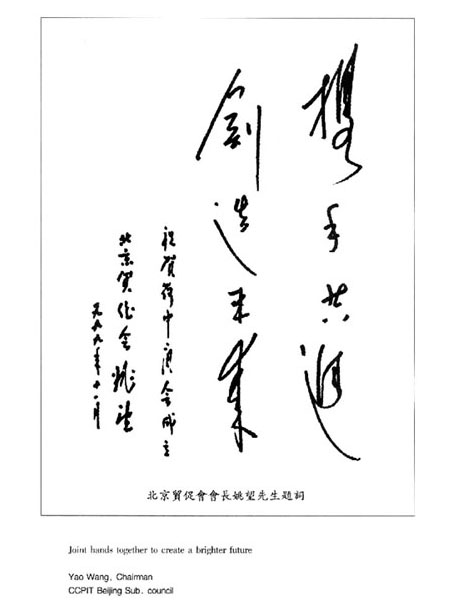 携手共進
創造未来
祝賀荷中商会成立
北京貿促会姚望
一九九九年十一月
北京貿促會會長姚望先生題詞
Joint hands together to create a brighter future
Yao Wang. Chairman
CCPIT Beijing Sub. council